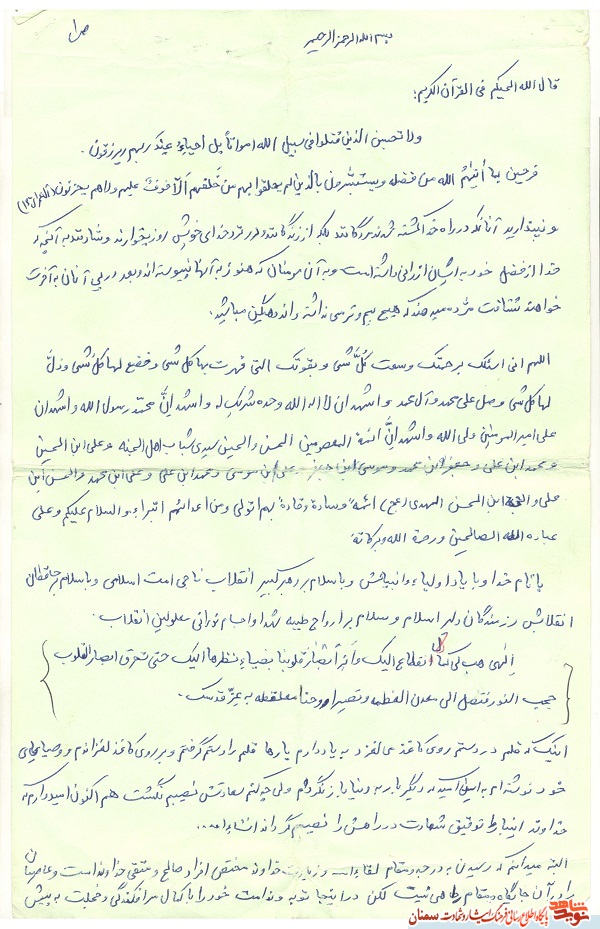 ص ۱
بسم الله الرحمن الرحیم
قال الله الحکیم فی القرآن الکریم:
ولا تحسبن الذین قتلوا فی سبیل الله امواتاً بل احیاء عند ربهم یرزقون.
فرحین بما آتیهُم الله من فضله و یستبشرون بالذین لم یلحقوا بهم من خَلفهم اَلّا خوفٌ علیهم ولا هم یحزنون
و نپندارید آنانکه در راه خدا کشته شدند مردگانند بلکه از زندگانند و در نزد خدای خویش روزیخوارند و شادمند به آنچه که
خدا از فضل خود به ایشان ارزانی داشته است و به آن مومنانی که هنوز به آنها نپیوسته اند و بعد در پی آنان به آخرت
خواهند شتافت مژده میدهند که هیچ بیم و ترسی نداشته و اندوهگین مباشید.
اللهم انی اسئلک برحمتک وسعت کُلَّ شی و بقوتک التی قهرت بها کل شی و خضع لها کل شی و ذلَّ
لها کل شی و صل علی محمد و آل محمد و اشهد ان لا اله الا الله وحده لا شریک له و اشهد انَّ محمد رسول الله و اشهد ان
علی امیر المومنین ولی الله و اشهد انَّ ائمة المعصومین الحسن والحسین سیدی شباب اهل الجنه و علی ابن الحسین
و محمد ابن علی و جعفر ابن محمد و موسی ابن جعفر و علی ابن موسی و محمد ابن علی و علی ابن محمد و الحسن ابن
علی و الحجة ابن الحسن المهدی (عج) ائمة و سادة و قادة بهم اتولی و من اعدائهم اتبراء و السلام علیکم و علی
عباد الله الصالحین و رحمة الله و برکاته
با نام خدا و با یاد اولیاء و انبیاهش و با سلام بر رهبر کبیر انقلاب ناجی امت اسلامی و با سلام بر حافظان
انقلابش رزمندگان دلیر اسلام و سلام بر ارواح طیبه شهدا و اجسام نورانی معلولین انقلاب.
الهی هب لی کمال انقطاع الیک و اَنِر اَبصار قلوبنا بضیاء نظرها الیک حتی تخرق ابصار القلوب
حجب النور فتصل الی معدن العظمه و تصیر ارواحنا معلقطه به عزِّ قدسک.
اینک که قلم در دستم روی کاغذ می لغزد به یاد دارم بارها قلم را دستم گرفتم و بر روی کاغذ لغزاندم و وصایاهای
خود نوشته ام به امید آنکه دیگر بار به دنیا باز نگردم ولی چه کنم سعادتش نصیبم نگشت هم اکنون امیدوارم که
خداوند اینبار توفیق شهادت در راهش را نصیبم گرداند انشاءا...
البته میدانم که رسیدن به درجه و مقام لقاءا... و زیارت خداوند مختص افراد صالح و متقی خداوند است و عاصیان
را در آن جایگاه و مقام راهی نیست لکن در اینجا توبه و ندامت خود را با کمال سرافکندگی و خجلت به پیش
نوید شاهد
پایگاه اطلاع رسانی فرهنگ ایثار و شهادت سمنان